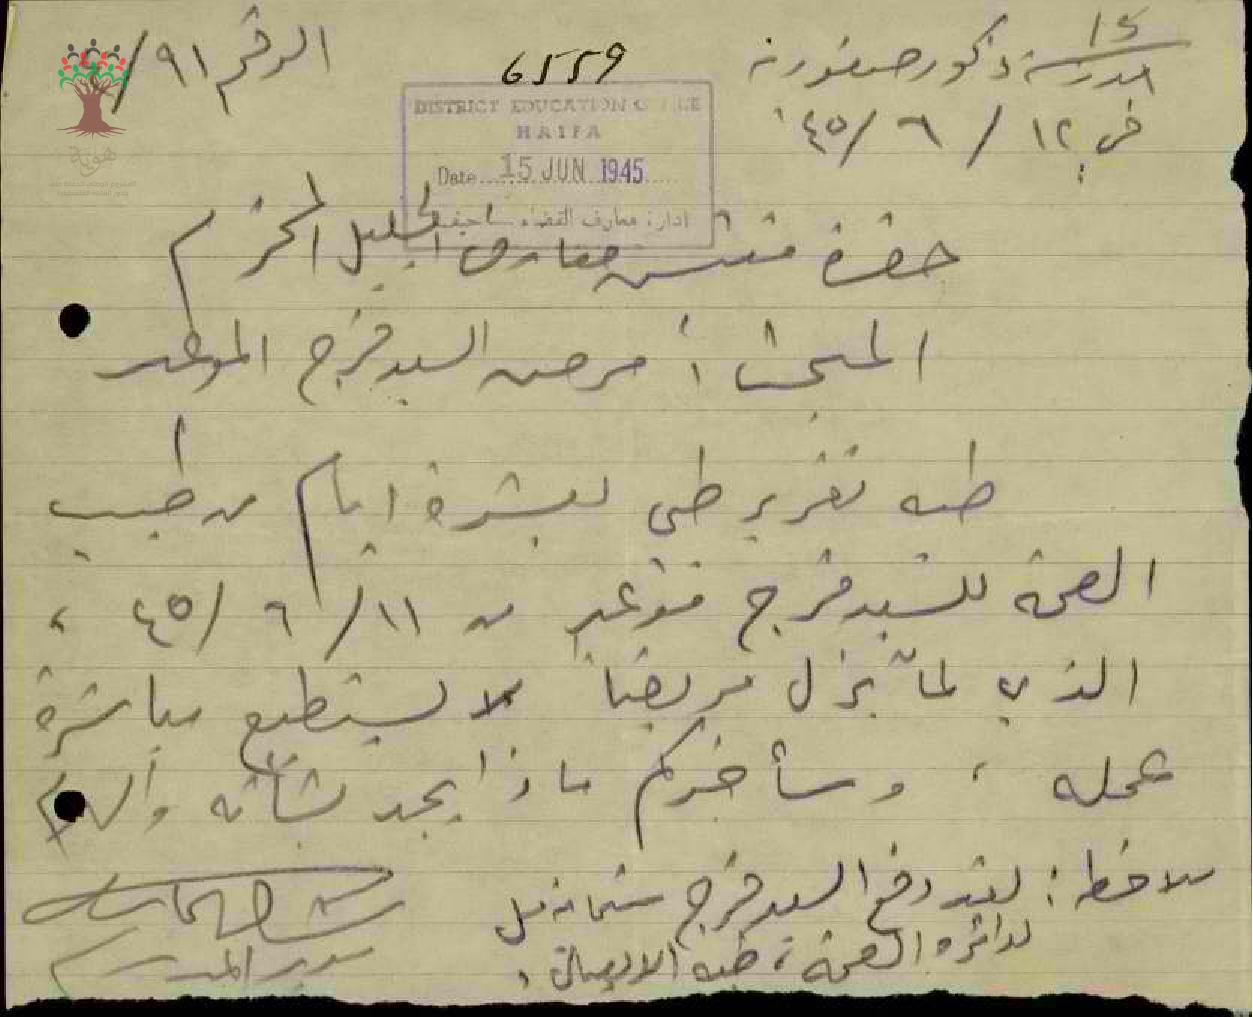 15
الرقم ٩١/
6559
مدرسة ذكور صفورية
في ١٢/٦/٤٥
DISTRICT EDUCATION OFFICE
HAIFA
Date 15 JUN 1945
ادارة معارف القضاء حيفا
حضرة مفتش معارف الجليل المحترم
المبحث: مرض السيد فرج الموعد
طيه تقرير طبي لعشرة ايام من طبيب
الصحة للسيد فرج من ١١/٦/٤٥،
الذي لمّا يزل مريضاً لا يستطيع مباشرة
عمله، وسأخبركم ماذا يجد بشأنه والسلام
ملاحظة: لقد دفع السيد فرج ستماية مل
لدائرة الصحة، طيه الايصال.
مدير المدرسة
هوية